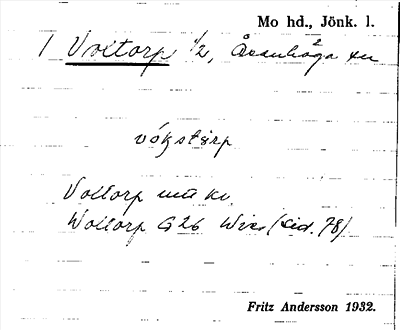 Mo hd., Jönk. l.
1 Voitorp 1/2, Åsenhöga sn
vókstǝrp
Voitorp
Woitorp G 26 (sid. 78)
Fritz Andersson 1932.